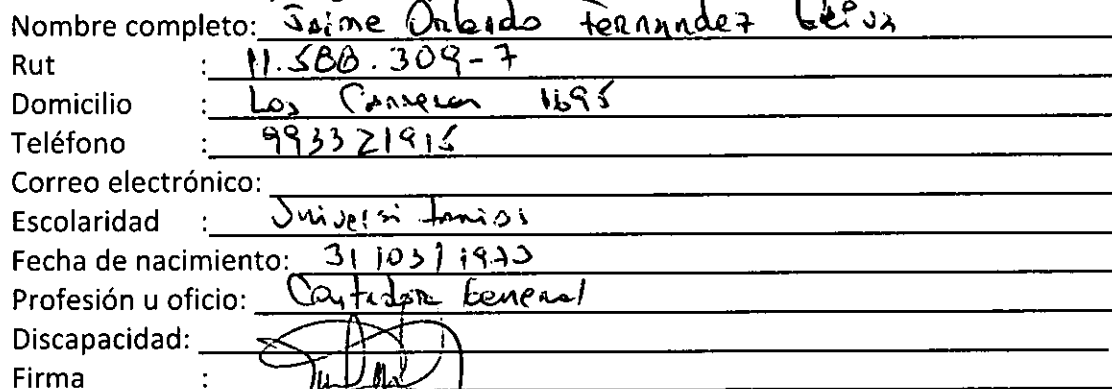 Nombre completo: Jaime Orlando Fernandez Leiva
Rut : 11.588.309-7
Domicilio : Los Carrera 1695
Teléfono : 993321915
Correo electrónico:
Escolaridad : Universitarios
Fecha de nacimiento: 31/03/1970
Profesión u oficio: Contador General
Discapacidad:
Firma :